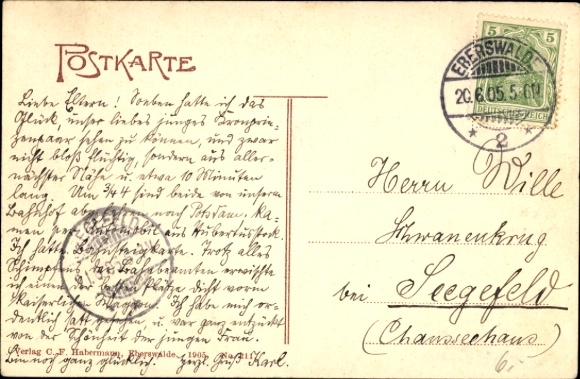 POSTKARTE
Liebe Eltern! Soeben hatte ich das
Glück, unser liebes junges Kronprin-
zenpaar sehen zu können, und zwar
nicht bloß flüchtig, sondern aus aller-
nächster Nähe u. etwa 10 Minuten
lang. Um 3/4 4 sind beide von unserm
Bahnhof nach Potsdam. Ka-
men per Automobil aus Hubertusstock.
Ich hatte Bahnsteigkarte. Trotz alles
Schimpfens der Bahnbeamten erwischte
ich einen der Plätze dicht vorm
Kaiserlichen Waggon. Ich habe mich or-
dentlich satt gesehen, u. war ganz entzückt
von der Schönheit der jungen Frau.
Verlag C. F. Habermann, Eberswalde. 1905. No.
Bin noch ganz glücklich. Gruß Karl.
EBERSWALDE
20.6.05.5-6N
* 2 *
5 5
DEUTSCHES REICH
Herrn Wille
Schwanenkrug
bei Seegefeld
(Chausseehaus)
6,-